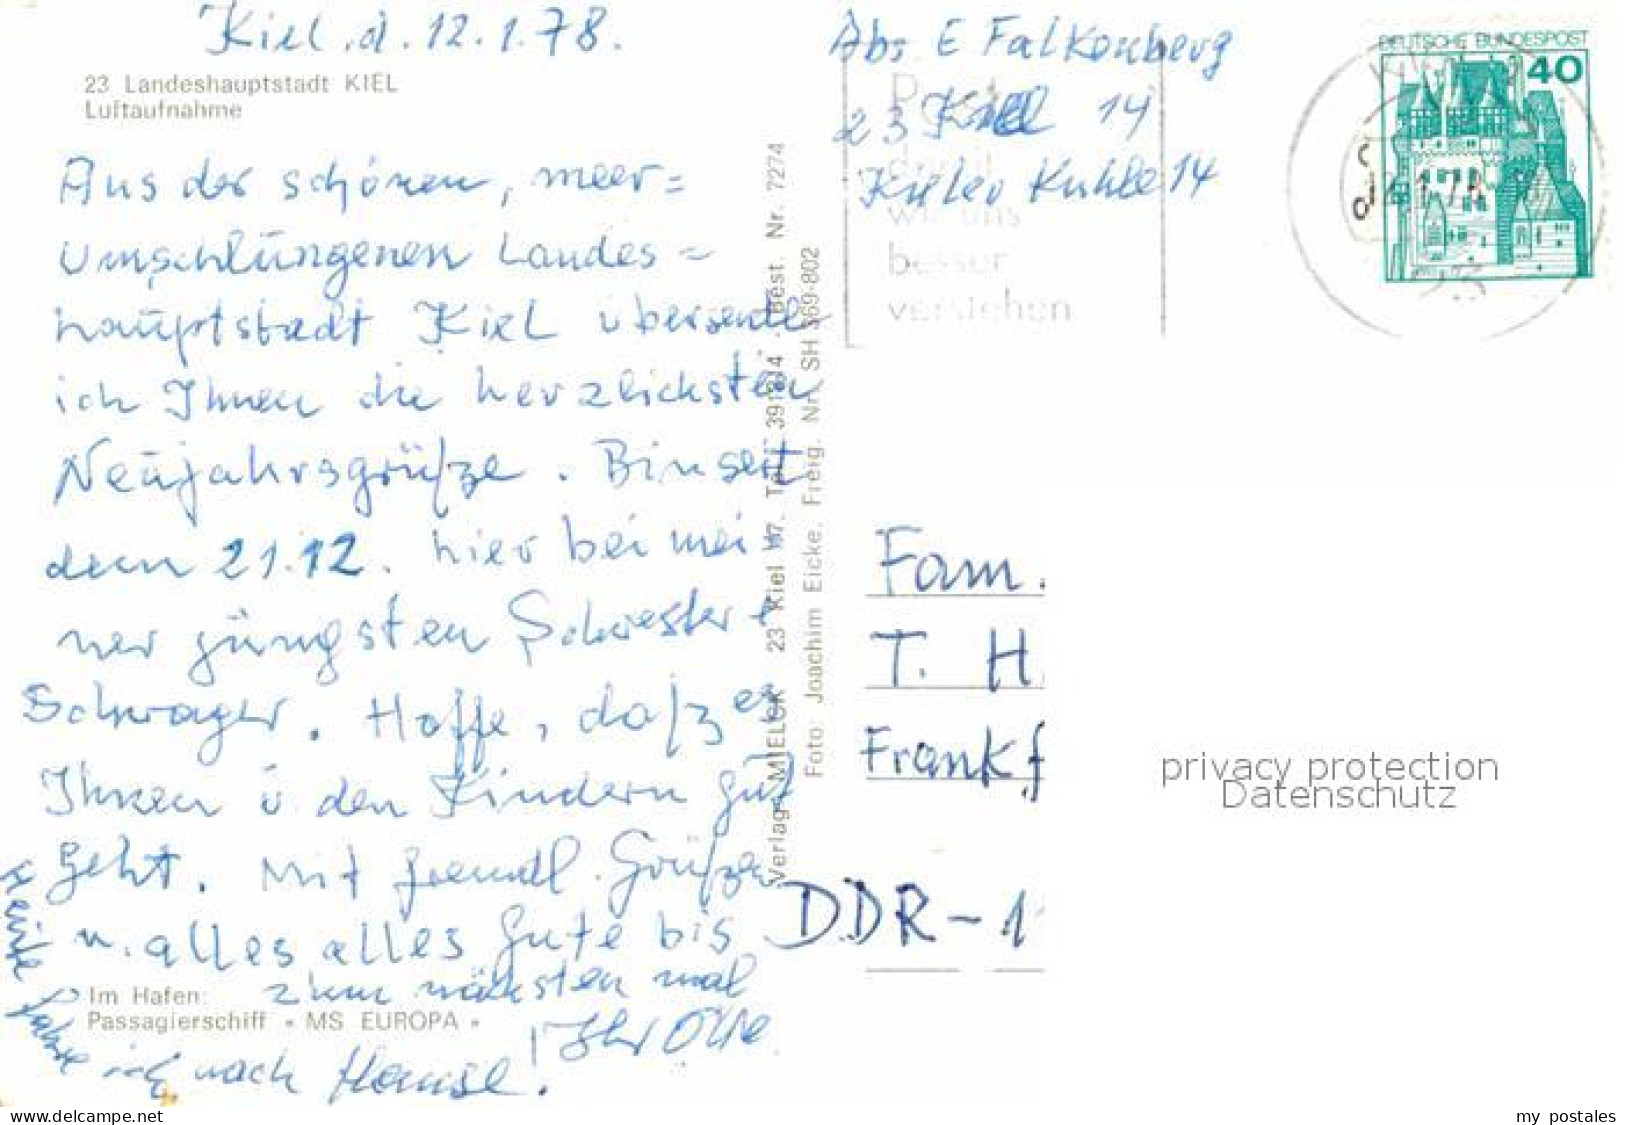 Kiel, d. 12.1.78.
23 Landeshauptstadt KIEL
Luftaufnahme
Aus der schönen, meer=
umschlüngenen Landes=
haŭptstadt Kiel übersende
ich Ihnen die herzlichsten
Neŭjahrsgrüße. Bin seit
dem 21.12. hier bei mei
ner jüngsten Schwester +
Schwager. Hoffe, daß es
Ihnen u. den Kindern gŭt
geht. Mit freundl. Grüßen
u. alles alles Gute bis
zum nächsten mal
Ihr
Heute fahre ich nach Hause!
Im Hafen:
Passagierschiff « MS EUROPA »
Verlag MIELCK 23 Kiel 17. Tel. Best. Nr. 7274
Foto: Joachim Eicke. Freig. Nr. SH 369-802
Abs. E Falkenberg
23 Kiel 14
Kieler Kuhle 14
damit
wir uns
besser
verstehen
DEUTSCHE BUNDESPOST
40
Fam.
T. H
Frankf
DDR - 1
privacy protection
Datenschutz
delcampe.net
my_postales